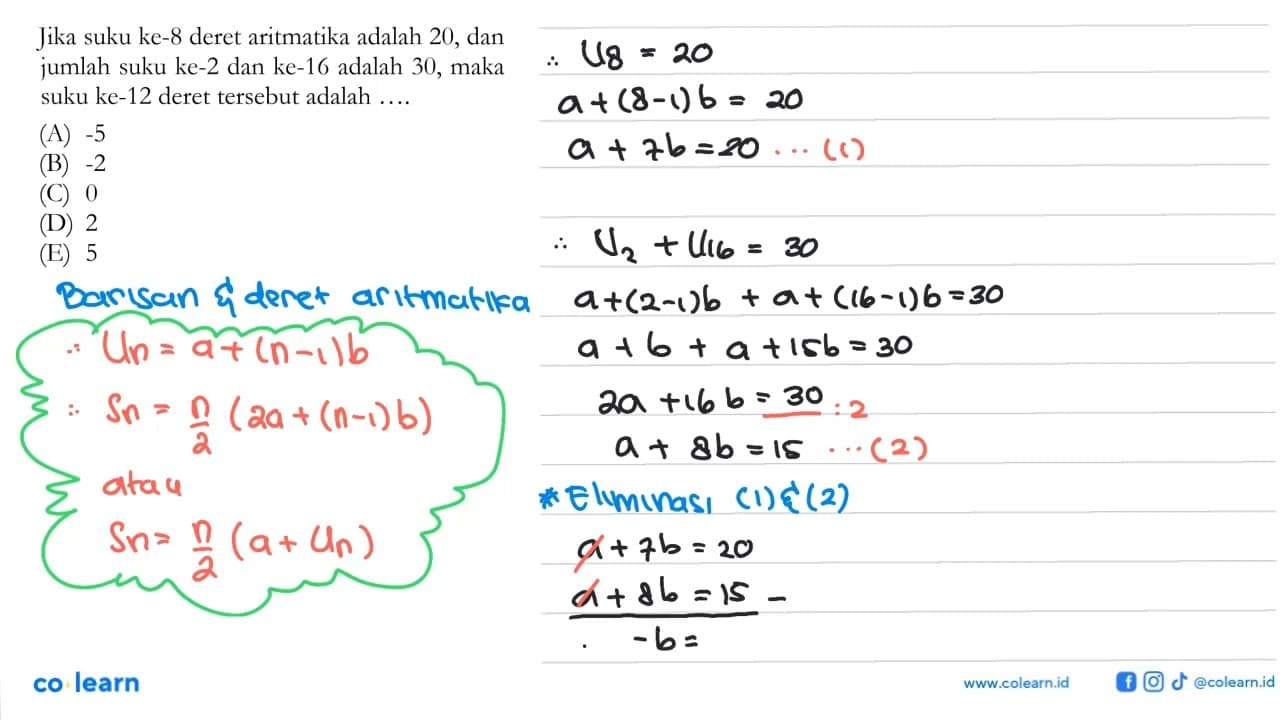 Jika suku ke-8 deret aritmatika adalah 20, dan
jumlah suku ke-2 dan ke-16 adalah 30, maka
suku ke-12 deret tersebut adalah ....
(A) -5
(B) -2
(C) 0
(D) 2
(E) 5
Barisan & deret aritmatika
∴ Un = a + (n-1)b
∴ Sn = n/2 (2a + (n-1)b)
atau
Sn = n/2 (a + Un)
∴ U8 = 20
a + (8-1)b = 20
a + 7b = 20 ... (1)
∴ U2 + U16 = 30
a + (2-1)b + a + (16-1)b = 30
a + b + a + 15b = 30
2a + 16b = 30 : 2
a + 8b = 15 ... (2)
* Eliminasi (1) & (2)
a + 7b = 20
a + 8b = 15 -
-b =
co learn
www.colearn.id
@colearn.id